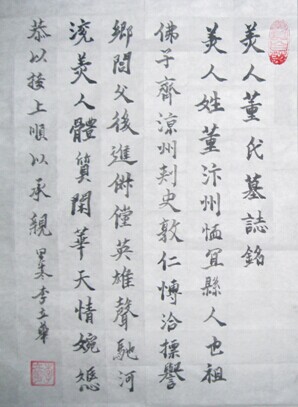 美人董氏墓誌銘
美人姓董汴州恤宜縣人也祖
佛子齊涼州刺史敦仁愽洽摽譽
鄉閭父後進俶儻英雄聲馳河
渷美人體質閑華天情婉嫕
恭以接上順以承親 李立華